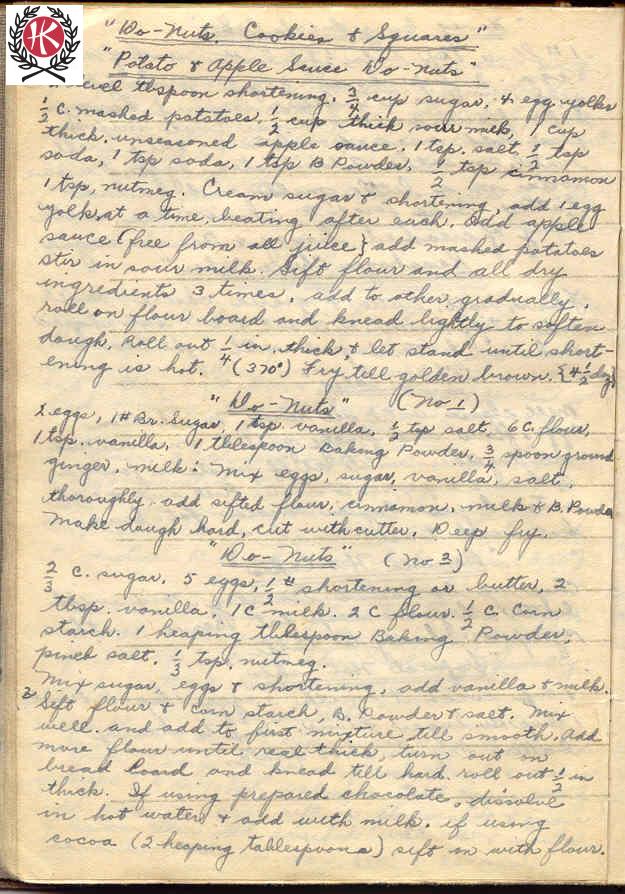 HK
"Do-Nuts. Cookies & Squares"
"Potato & Apple Sauce Do-Nuts"
level tblspoon shortening. 3/4 cup sugar, 4 egg yolks
1/2 C. mashed patatoes, 1/2 cup thick sour milk, 1 cup
thick, unseasoned apple sauce, 1 tsp. salt, 1/2 tsp
soda, 1 tsp soda, 1 tsp B Powder, 1/2 tsp cinnamon
1 tsp, nutmeg. Cream sugar & shortening, add 1 egg
yolk, at a time, beating after each. Add apple
sauce {free from all juice} add mashed potatoes
stir in sour milk. Sift flour and all dry
ingredients 3 times, add to other gradually,
roll on flour board and knead lightly to soften
dough. Roll out 1/4 in. thick, & let stand until short-
ening is hot. (370°) Fry till golden brown. {4 1/2 doz}
"Do-Nuts" (No 1)
2 eggs, 1# Br. Sugar, 1 tsp vanilla, 1/2 tsp salt, 6 C. flour,
1 tsp. vanilla, 1 tblespoon Baking Powder, 3/4 spoon ground
ginger, milk: Mix eggs, sugar, vanilla, salt,
thoroughly. add sifted flour, cinnamon, milk & B. Powder
Make dough hard, cut with cutter. Deep fry.
"Do-Nuts" (No 2)
2/3 C. sugar, 5 eggs, 1/2 # shortening or butter, 2
tbsp. vanilla. 1 C milk. 2 C flour. 1/2 C. Corn
starch. 1 heaping tblespoon Baking Powder,
pinch salt. 1/3 tsp. nutmeg.
Mix sugar, eggs & shortening, add vanilla & milk.
Sift flour & corn starch, B. Powder & salt. Mix
well. and add to first mixture till smooth. Add
more flour until real thick, turn out on
bread board and knead till hard, roll out 1/2 in
thick. If using prepared chocolate, dissolve
in hot water & add with milk. if using
cocoa (2 heaping tablespoons) sift in with flour.